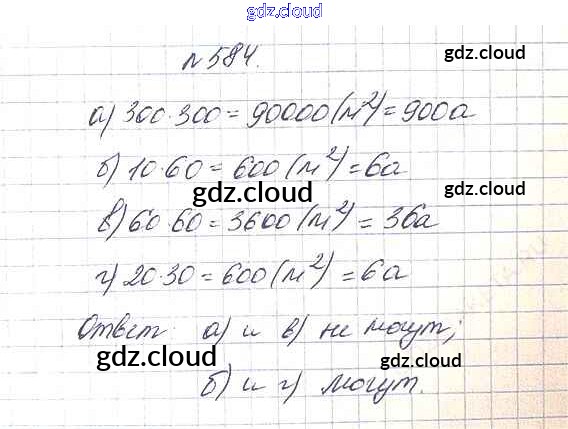 gdz.cloud
gdz.cloud
№ 584.
а) 300·300 = 90000 (м²) = 900а
б) 10·60 = 600 (м²) = 6а
gdz.cloud
gdz.cloud
в) 60·60 = 3600 (м²) = 36а
г) 20·30 = 600 (м²) = 6а
Ответ а) и в) не могут;
gdz.cloud
gdz.cloud
б) и г) могут.